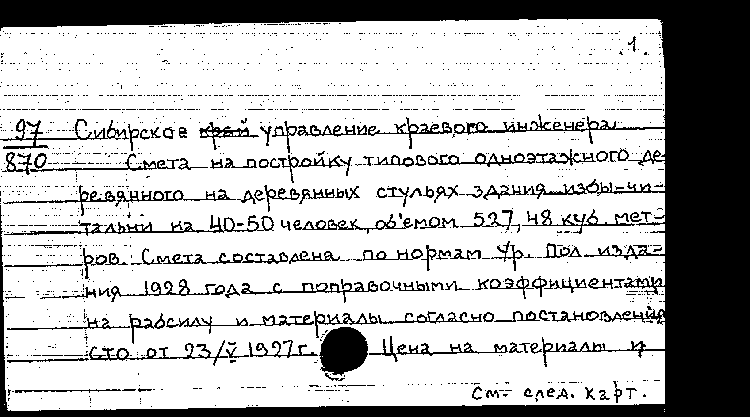 1.
97
870
Сибирское край управление краевого инженера
Смета на постройку типового одноэтажного де-
ревянного на деревянных стульях здания избы-чи-
тальни на 40-50 человек, об'емом 527,48 куб. мет-
ров. Смета составлена по нормам Ур. Пол. изда-
ния 1928 года с поправочными коэффициентами
на рабсилу и материалы согласно постановления
СТО от 23/V 1927г. Цена на материалы и
См. след. карт.